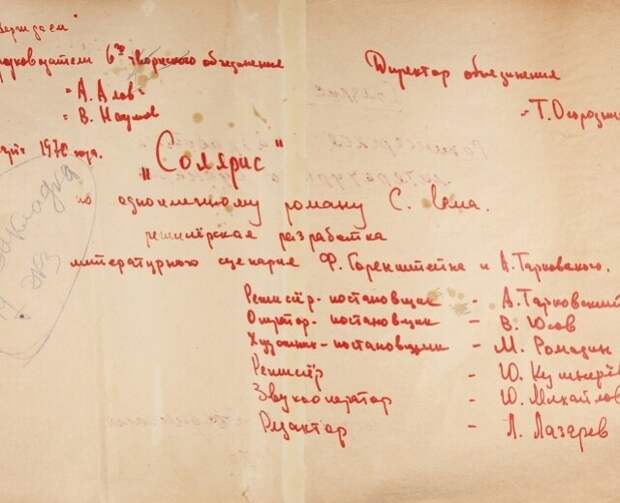 "Утверждаем"
руководители 6го творческого объединения
= А. Алов=
= В. Наумов
1970 года.
Директор объединения
= Т. Огородни
„Солярис"
по одноименному роману С. Лема.
режиссёрская разработка
литературного сценария Ф. Горенштейна и А. Тарковского.
Режиссёр-постановщик - А. Тарковский
Оператор-постановщик - В. Юсов
Художник-постановщик - М. Ромадин
Режиссёр - Ю. Кушнерёв
Звукооператор - Ю. Михайлов
Редактор - Л. Лазарев